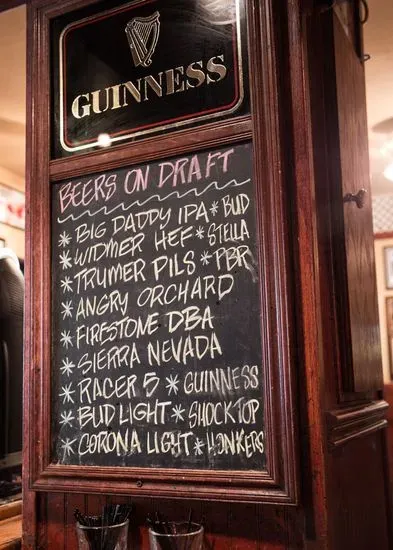 GUINNESS
BEERS ON DRAFT
* BIG DADDY IPA * BUD
* WIDMER HEF * STELLA
* TRUMER PILS * PBR
* ANGRY ORCHARD
* FIRESTONE DBA
* SIERRA NEVADA
* RACER 5 * GUINNESS
* BUD LIGHT * SHOCKTOP
* CORONA LIGHT * HONKERS